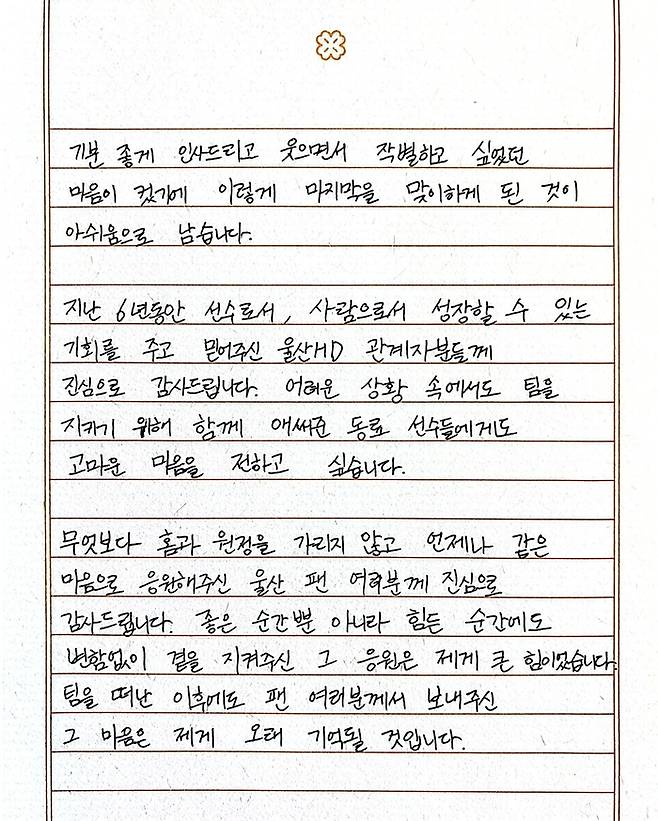 기분 좋게 인사드리고 웃으면서 작별하고 싶었던
마음이 컸기에 이렇게 마지막을 맞이하게 된 것이
아쉬움으로 남습니다.
지난 6년동안 선수로서, 사람으로서 성장할 수 있는
기회를 주고 믿어주신 울산HD 관계자분들께
진심으로 감사드립니다. 어려운 상황 속에서도 팀을
지키기 위해 함께 애써준 동료 선수들에게도
고마운 마음을 전하고 싶습니다.
무엇보다 홈과 원정을 가리지 않고 언제나 같은
마음으로 응원해주신 울산 팬 여러분께 진심으로
감사드립니다. 좋은 순간뿐 아니라 힘든 순간에도
변함없이 곁을 지켜주신 그 응원은 제게 큰 힘이었습니다.
팀을 떠난 이후에도 팬 여러분께서 보내주신
그 마음은 제게 오래 기억될 것입니다.